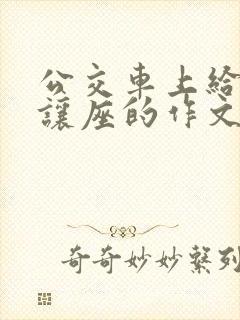 公交車上給
讓座的作文
奇奇妙妙繫列